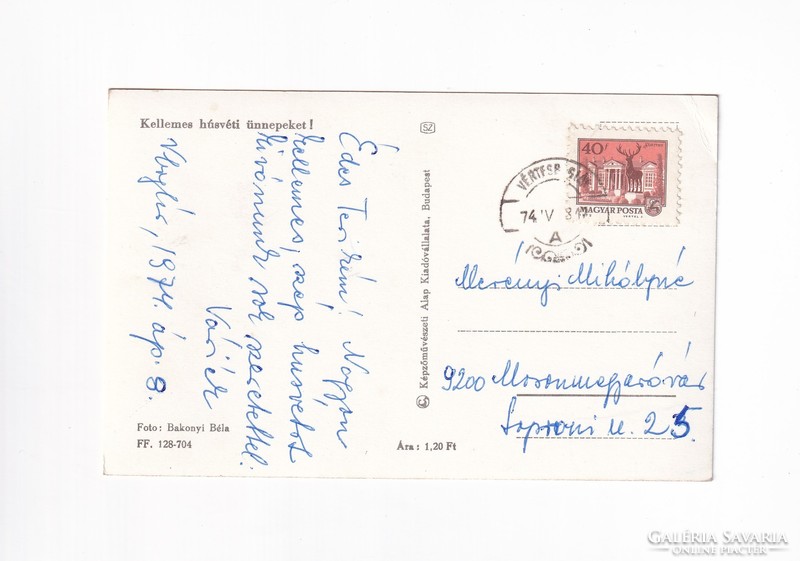 Kellemes húsvéti ünnepeket!
Édes Terikém! Nagyon
kellemes, szép húsvétot
kívánunk sok szeretettel.
Váriék
1974. áp. 8.
Foto: Bakonyi Béla
FF. 128-704
© Képzőművészeti Alap Kiadóvállalata, Budapest
SZ
Ára: 1,20 Ft
40
MAGYAR POSTA
74 IV
A
Merényi Mihályné
9200 Mosonmagyaróvár
Soproni u. 25.
GALÉRIA SAVARIA
ONLINE PIACTÉR